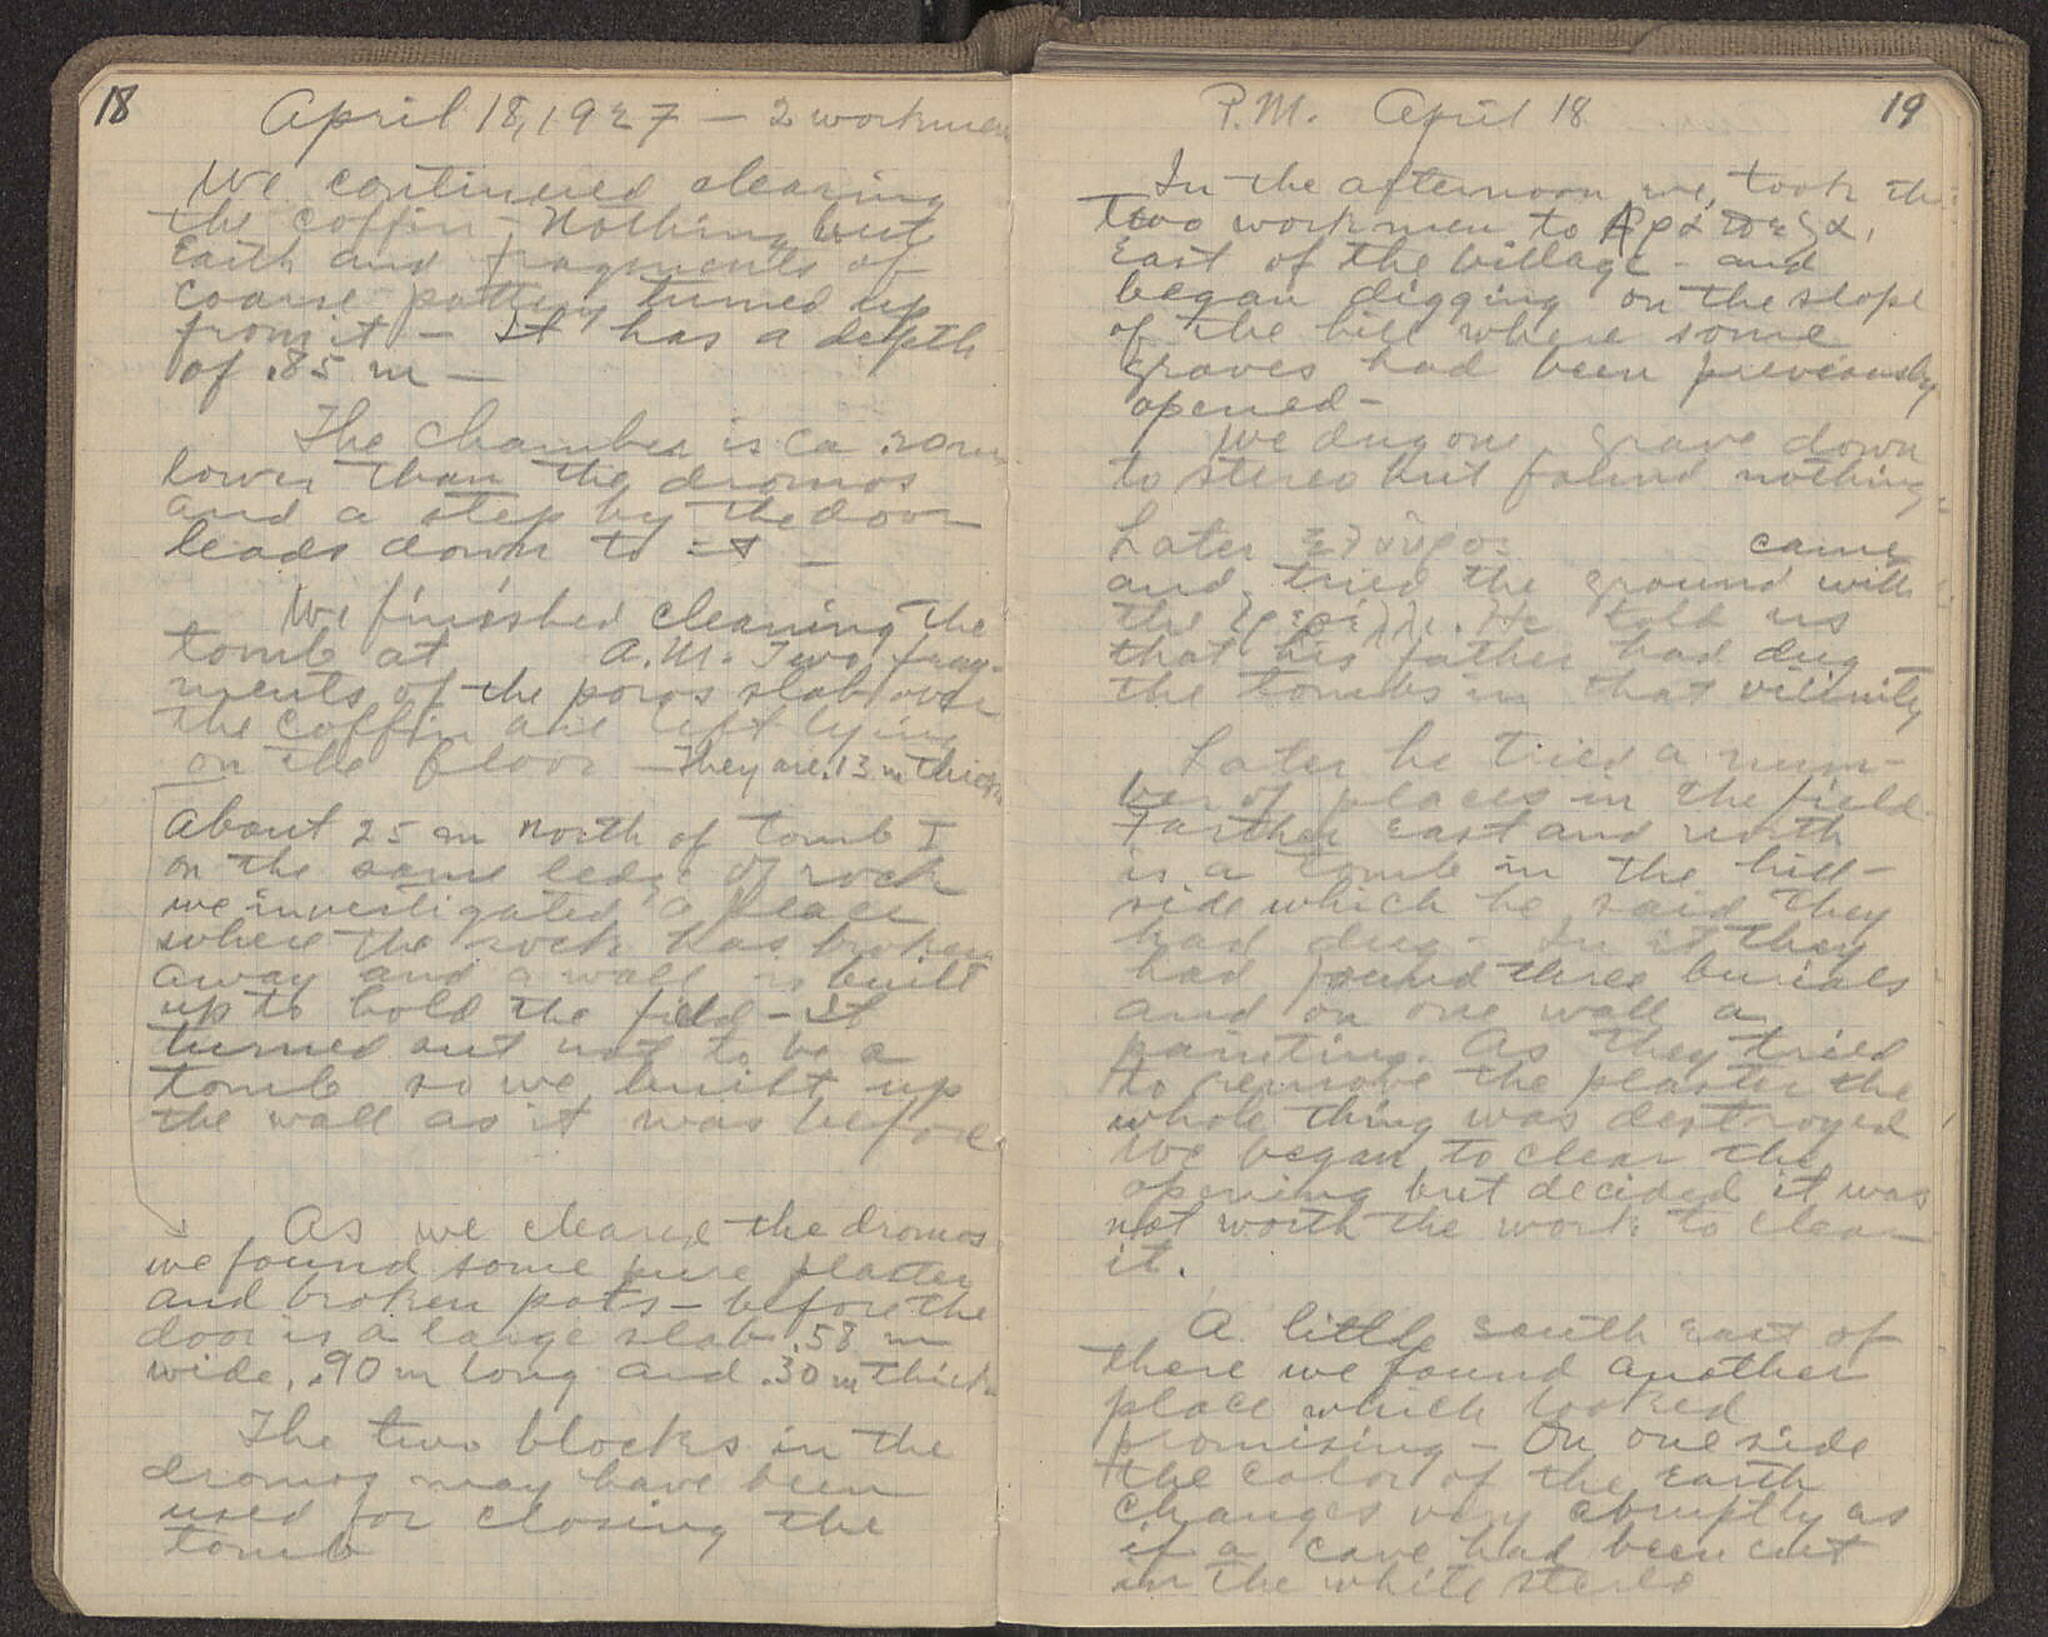 18
April 18, 1927 – 2 workmen
We continued clearing
the coffin – Nothing but
Earth and fragments of
coarse pottery turned up
from it – It has a depth
of .85 m –
The chamber is ca .20 m
lower than the dromos
and a step by the door
leads down to it –
We finished cleaning the
tomb at A.M. Two frag-
ments of the poros slab over
the coffin are left lying
on the floor – They are .13 m thick
About 25 m north of tomb I
on the same ledge of rock
we investigated a place
where the rock has broken
away and a wall is built
up to hold the field – It
turned out not to be a
tomb so we built up
the wall as it was before
As we cleared the dromos
we found some pure plaster
and broken pots – before the
door is a large slab .58 m
wide, .90 m long and .30 m thick
The two blocks in the
dromos may have been
used for closing the
tomb
P.M. April 18
19
In the afternoon we took the
two workmen to
East of the village – and
began digging on the slope
of the hill where some
graves had been previously
opened –
We dug one grave down
to stereo but found nothing
Later came
and tried the ground with
the He told us
that his father had dug
the tombs in that vicinity
Later he tried a num-
ber of places in the field.
Farther east and north
is a tomb in the hill-
side which he said they
had dug – In it they
had found three burials
and on one wall a
painting. As they tried
to remove the plaster the
whole thing was destroyed
We began to clear the
opening but decided it was
not worth the work to clear
it.
A little south east of
there we found another
place which looked
promising – On one side
the color of the earth
changes very abruptly as
if a cave had been cut
in the white stereo